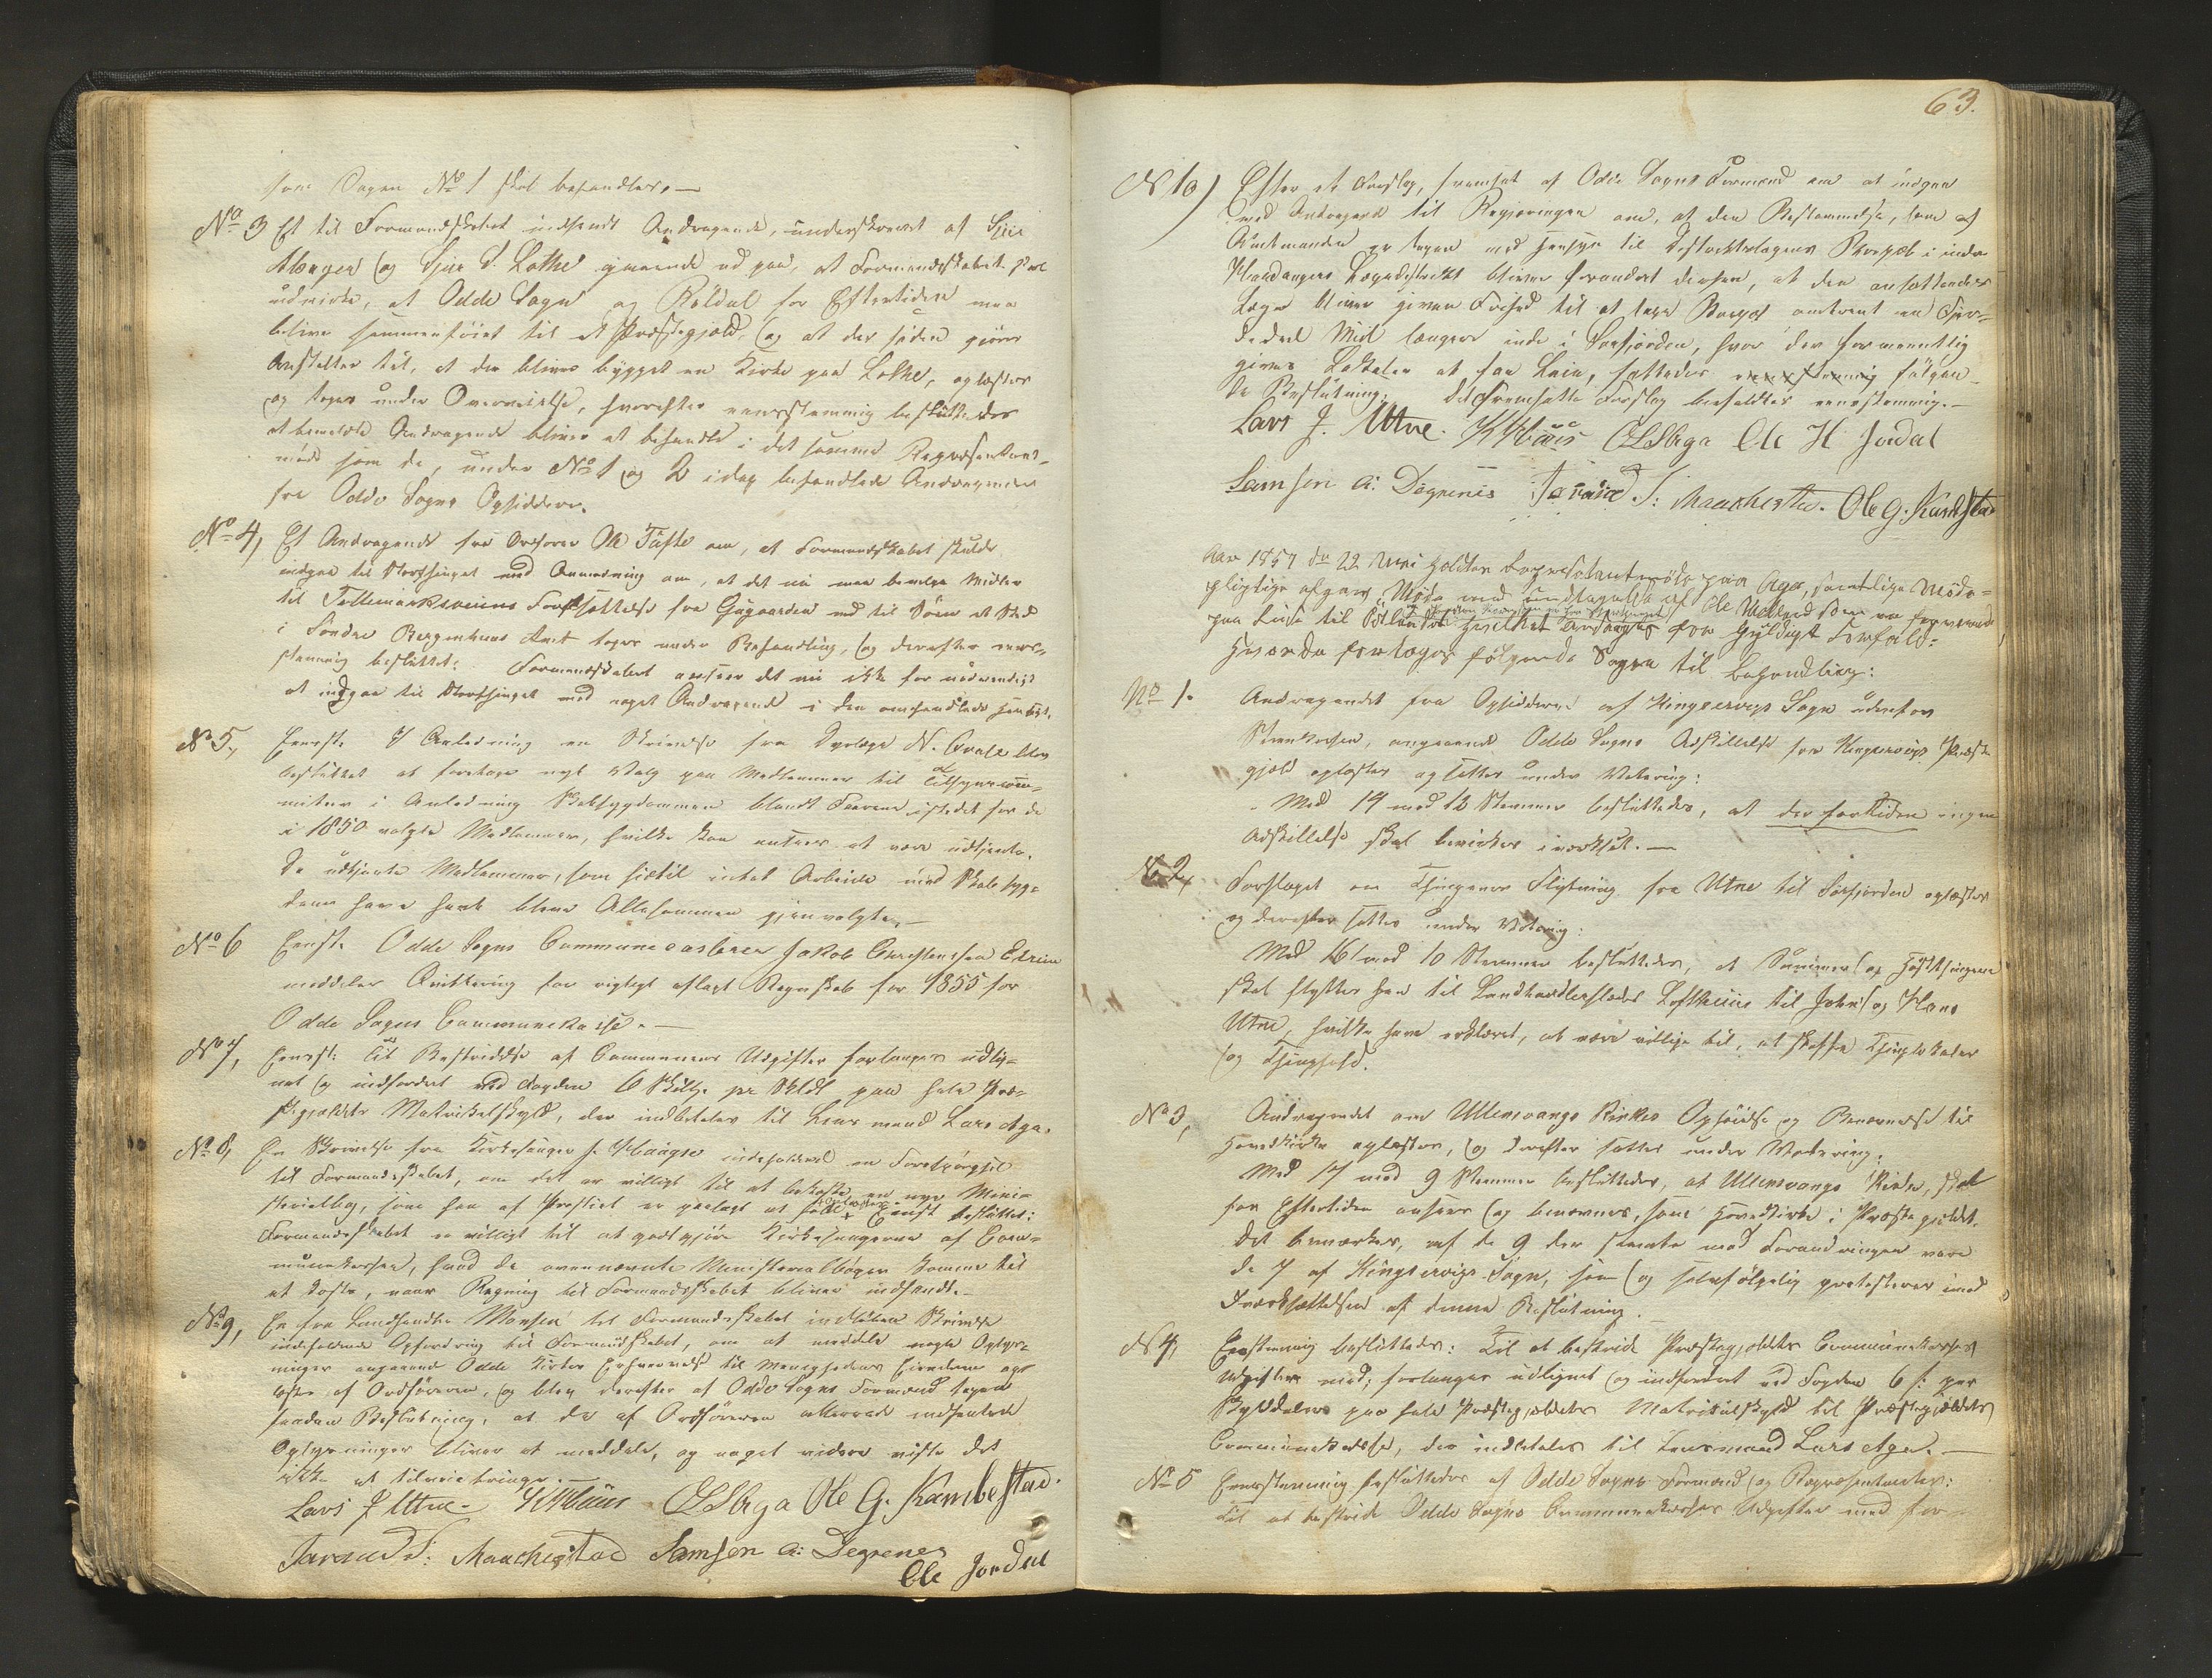 som Sagen No 1 skal behandles.—
No 3 Et til Formandskabet indsendt Andragende, underskrevet af Sjur
og Sjur S. Lothe gaaende ud paa, at Formandskabet skal
udvirke, at Odde Sogn og Røldal for Eftertiden maa
blive sammenføiet til et Præstegjæld, og at der siden gjøres
Anstalter til, at der bliver bygget en Kirke paa Lothe, oplæstes
og toges under Overveielse, hvorefter eensstemmig besluttedes
at bemeldte Andragende bliver at behandle i det samme Repræsentant-
møde som de, under No 1 og 2 idag behandlede Andragender
fra Odde Sogns Opsiddere.
No 4, Et Andragende fra Ordfører Ole Tufte om, at Formandskabet skulde
indgaa til Storthinget med Anmodning om, at det nu maa bevilge Midler
til Tellemarksveiens Fortsættelse fra Gugaarden ned til Søen et Sted
i Søndre Bergenhuus Amt toges under Behandling, og derefter eens-
stemmig besluttet: Formandskabet anseer det nu ikke for nødvendigt
at indgaa til Storthinget med noget Andragende i den omhandlede Henseende.
No 5, Eenst. I Anledning en Skrivelse fra Dyrlæge N. blev
besluttet at foretage nyt Valg paa Medlemmer til Tilsynscom-
miteer i Anledning Skabsygdommen blandt Faarene istedet for de
i 1850 valgte Medlemmer, hvilke kan ansees at være udtjente.
De udtjente Medlemmer, som hidtil intet Arbeide med Skabsyge-
dom have havt bleve Allesammen gjenvalgte.—
No 6 Eenst. Odde Sogns Communecasserer Jakob Christensen Eitrim
meddeles Qvittering for rigtigt aflagt Regnskab for 1855 for
Odde Sogns Communekasse.—
No 7, Eenst: Til Bestridelse af Communens Udgifter forlanges udlig-
net og indfordret ved Fogden 6 Skill. pr Skldl paa hele Præ-
stegjældets Matrikulskyld, der indbetales til Lensmand Lars Aga.
No 8, En Skrivelse fra Kirkesanger J. Haaigse indeholdende en Forespørgsel
til Formandskabet, om det er villigt til at bekoste en nye Mini-
sterialbog, som han af Provstiet er paalagt at føre. Eenst besluttet:
Formandskabet er villigt til at godtgjøre Kirkesangerne af Com-
munekassen, hvad de ovennævnte Ministerialbøger komme til
at koste, naar Regning til Formandskabet bliver indsendt.—
No 9, En fra Landhandler Monsen til Formandskabet indløben Skrivelse
indeholdende Opfordring til Formandskabet, om at meddele nogle Oplys-
ninger angaaende Odde Kirkes til Menighedens Eiendom op-
læstes af Ordføreren, og blev derefter af Odde Sogns Formænd tagen
saadan Beslutning, at de af Ordføreren allerede indhentede
Oplysninger bliver at meddele, og noget videre vidste det
ikke at tilveiebringe.—
Lars J Utne. OLSAga Ole G. Kambestad.
Tarald S: Maachestad Samson A: Degrenes
Ole Jordal
63.
No 10) Efter et Forslag, fremsat af Odde Sogns Formænd om at indgaa
med Andragende til Regjeringen om, at den Bestemmelse, som af
Amtmanden er tagen med Hensyn til Distriktslægens Bopæl i indre
Hardangers Lægedistrikt bliver forandret derhen, at den ansættendes
Læge bliver given Frihed til at tage Bopæl omtrent en Fjer-
dedeel Miil længere inde i Sørfjorden, hvor der formeentlig
gives Lokaler at faa Leie, fattedes eensstemmig følgen-
de Beslutning: Det fremsatte Forslag bifaldtes eenstemmig.—
Lars J. Utne. OLSAga Ole H Jordal
Samson A: Degrenes Tarald S: Maachestad. Ole G. Kambestad
Aar 1857 den 22 Mai holdtes Repræsentantmøde paa Aga, samtlige Møde-
pligtige afgav Møde med undtagelse af Ole som er fraværende
paa Reise til Østlandet hvilket ansaaes for gyldigt Forfald.
Hvorda foretoges følgende Sager til Behandling:
No 1. Andragendet fra Opsidderne af Kingservigs Sogn udenfor
angaaende Odde Sogns Adskillelse fra Kingservigs Præste-
gjæld oplæstes og sattes under Votering:
- Med 14 mod 12 Stemmer besluttedes, at der for Tiden ingen
Adskillelse skal bevirkes iværksat.—
No 2, Forslaget om Thingenes Flytning fra Utne til Sørfjorden oplæstes
og derefter sattes under Votering:
Med 16 mod 10 Stemmer besluttedes, at Sommer og Høstthingene
skal flyttes hen til Landhandlerstedet Lofthuus til John og Hans
Utne, hvilke have erklæret, at være villige til, at skaffe Thinglokaler
og Thinghold.
No 3, Andragendet om Ullensvangs Kirkes Ophøielse og Benævnelse til
Hovedkirke oplæstes, og derefter sattes under Votering:
Med 17 mod 9 Stemmer besluttedes, at Ullensvangs Kirke, skal
for Eftertiden ansees og benævnes, som Hovedkirke i Præstegjældet.
Det bemærkes, at de 9 der stemte mod Forandringen vare
de 7 af Kingservigs Sogn, som og selvfølgelig protesterer imod
Iværksættelsen af denne Beslutning.
No 4, Eenstemmig besluttedes: Til at bestride Præstegjældets Communekasses
Udgifter med, forlanges udlignet og indfordret ved Fogden 6 s: per
Skylddaler paa hele Præstegjældets Matrikulskyld til Præstegjældets
Communekasse, der indbetales til Lensmand Lars Aga.—
No 5 Eenstemmig besluttedes af Odde Sogns Formænd og Repræsentanter:
Til at bestride Odde Sogns Communekasses Udgifter med for-